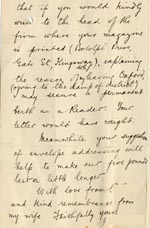 that if you would kindly
write to the head of the
firm where your magazine
is printed (
Gate St, Kingsway), explaining
the reason of my leaving Oxford
(owing to the damp of district)
I may secure a permanent
berth as a Reader. Your
letter would have weight.
Meanwhile your suggestion
of envelope addressing will
help to make our five pounds
last a little longer.
With love from
and kind remembrances from
my wife Faithfully yours